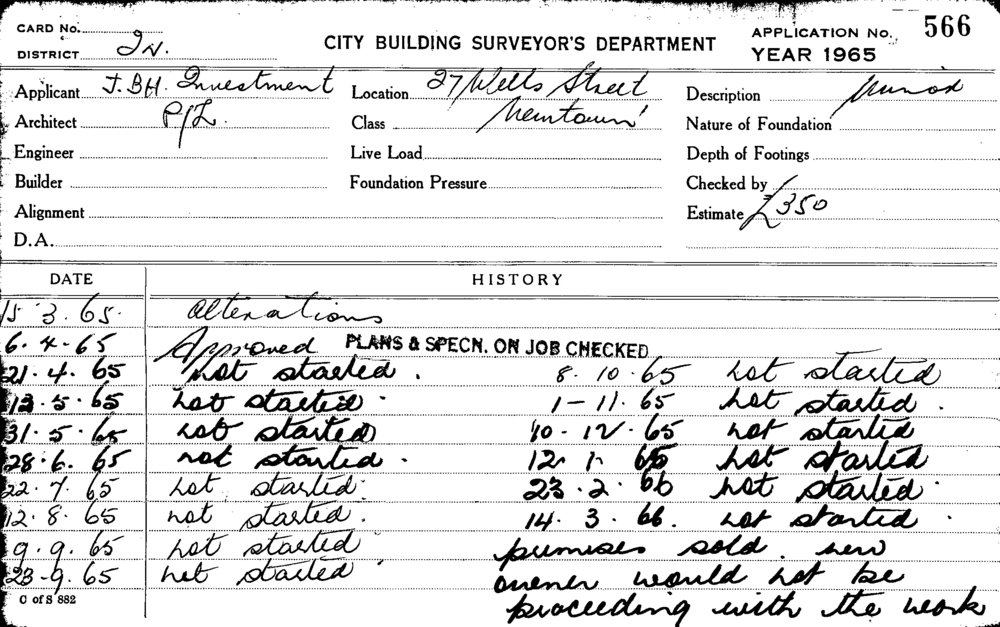 CARD No.
DISTRICT 2N.
CITY BUILDING SURVEYOR'S DEPARTMENT
APPLICATION No. 566
YEAR 1965
Applicant J. BH. Investment
Location 27 Wells Street
Description Minor
Architect P/L.
Class Newtown
Nature of Foundation
Engineer
Live Load
Depth of Footings
Builder
Foundation Pressure
Checked by
Alignment
Estimate £350
D.A.
DATE HISTORY
15 3. 65. Alterations
6. 4. -65 Approved PLANS & SPECN. ON JOB CHECKED
21. 4. 65 not started. 8. 10. 65 not started
13. 5. 65 not started. 1-11. 65 not started.
31. 5. 65 not started 10-12. 65 not started
28. 6. 65 not started. 12 1. 66 not started
22. 7. 65 not started. 23. 2. 66 not started.
12. 8. 65 not started. 14. 3. 66. not started.
9. 9. 65 not started premises sold. new
23-9. 65 not started owner would not be
C of S 882 proceeding with the work